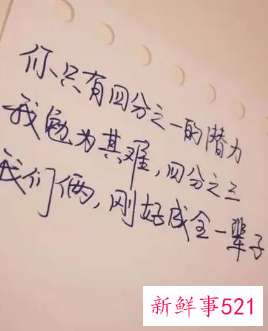 你只有四分之一的潜力
我勉为其难,四分之三
我们俩,刚好成全一辈子
新鲜事521